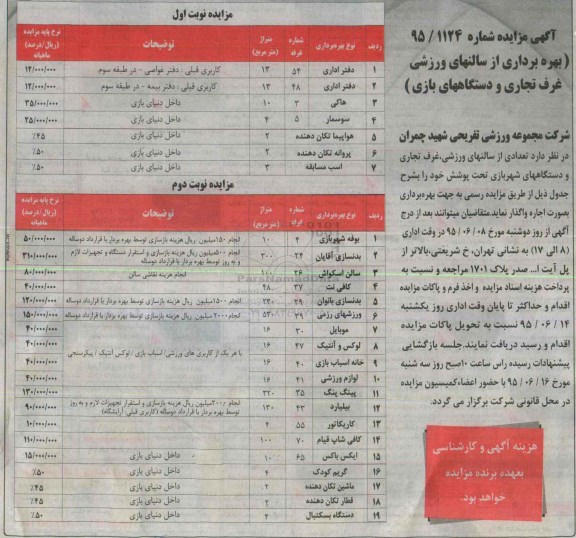 آگهی مزایده شماره ۱۱۲۴ / ۹۵
( بهره برداری از سالنهای ورزشی
غرف تجاری و دستگاههای بازی )
شرکت مجموعه ورزشی تفریحی شهید چمران
در نظر دارد تعدادی از سالنهای ورزشی،غرف تجاری
و دستگاههای شهربازی تحت پوشش خود را بشرح
جدول ذیل از طریق مزایده رسمی به جهت بهره‌برداری
بصورت اجاره واگذار نماید.متقاضیان میتوانند بعد از درج
آگهی از روز دوشنبه مورخ ۰۸ / ۰۶ / ۹۵ در وقت اداری
(۸ الی ۱۷) به نشانی تهران، خ شریعتی،بالاتر از
پل آیت ا... صدر پلاک ۱۷۰۱ مراجعه و نسبت به
پرداخت هزینه اسناد مزایده و اخذ فرم و پاکات مزایده
اقدام و حداکثر تا پایان وقت اداری روز یکشنبه
۱۴ / ۰۶ / ۹۵ نسبت به تحویل پاکات مزایده
اقدام و رسید دریافت نمایند.جلسه بازگشایی
پیشنهادات رسیده راس ساعت ۱۰صبح روز سه شنبه
مورخ ۱۶ / ۰۶ / ۹۵ با حضور اعضاء کمیسیون مزایده
در محل قانونی شرکت برگزار می گردد.
هزینه آگهی و کارشناسی
بعهده برنده مزایده
خواهد بود.
مزایده نوبت اول
ردیف نوع بهره‌برداری شماره غرفه متراژ (متر مربع) توضیحات نرخ پایه مزایده (ریال/درصد) ماهیانه
۱ دفتر اداری ۵۴ ۱۳ کاربری قبلی : دفتر غواصی - در طبقه سوم ۱۲/۰۰۰/۰۰۰
۲ دفتر اداری ۴۸ ۱۳ کاربری قبلی : دفتر بیمه - در طبقه سوم ۱۲/۰۰۰/۰۰۰
۳ هاکی ۳ ۱۰ داخل دنیای بازی ۳۵/۰۰۰/۰۰۰
۴ سوسمار ۵ ۴ داخل دنیای بازی ۲۵/۰۰۰/۰۰۰
۵ هواپیما تکان دهنده ۲ داخل دنیای بازی ٪۴۵
۶ پروانه تکان دهنده ۲ داخل دنیای بازی ٪۵۰
۷ اسب مسابقه ۳ داخل دنیای بازی ٪۵۰
مزایده نوبت دوم
ردیف نوع بهره‌برداری شماره غرفه متراژ (متر مربع) توضیحات نرخ پایه مزایده (ریال/درصد) ماهیانه
۱ بوفه شهربازی ۴ ۱۰ انجام ۱۵۰میلیون ریال هزینه بازسازی توسط بهره بردار با قرارداد دوساله ۵۰/۰۰۰/۰۰۰
۲ بدنسازی آقایان ۲۴ ۳۰۰ انجام ۵۰۰میلیون ریال هزینه بازسازی و استقرار دستگاه و تجهیزات لازم و به روز توسط بهره بردار با قرارداد دوساله ۳۱۰/۰۰۰/۰۰۰
۳ سالن اسکواش ۲۶ ۱۶۰ انجام هزینه نقاشی سالن ۸۰/۰۰۰/۰۰۰
۴ کافی نت ۳۷ ۴۸ ۴۰/۰۰۰/۰۰۰
۵ بدنسازی بانوان ۲۹ ۲۳۰ انجام ۱۵۰۰میلیون ریال هزینه بازسازی توسط بهره بردار با قرارداد دوساله ۱۲۰/۰۰۰/۰۰۰
۶ ورزشهای رزمی ۷۹ ۵۳۰ انجام ۲۰۰۰ میلیون ریال هزینه بازسازی توسط بهره بردار با قرارداد دوساله ۱۵۰/۰۰۰/۰۰۰
۷ موبایل ۳۰ ۱۶ ۴۰/۰۰۰/۰۰۰
۸ لوکس و آنتیک ۴۷ ۱۶ با هر یک از کاربری های ورزشی/ اسباب بازی / لوکس آنتیک / پیکرسنجی ۴۰/۰۰۰/۰۰۰
۹ خانه اسباب بازی ۴۰ ۱۶ ۴۰/۰۰۰/۰۰۰
۱۰ لوازم ورزشی ۴۱ ۱۶ ۴۰/۰۰۰/۰۰۰
۱۱ پینگ پنگ ۳۵ ۳۲۰ ۱۳۰/۰۰۰/۰۰۰
۱۲ بیلیارد ۴۳ ۱۳۰ انجام ۲۰۰میلیون ریال هزینه بازسازی و استقرار تجهیزات لازم و به روز توسط بهره بردار با قرارداد دوساله (کاربری قبلی: آرایشگاه) ۹۰/۰۰۰/۰۰۰
۱۳ کاریکاتور ۵۵ ۴ ۱۰/۰۰۰/۰۰۰
۱۴ کافی شاپ قیام ۷۰ ۱۰۰ ۱۱۰/۰۰۰/۰۰۰
۱۵ ایکس باکس ۶۵ ۱۰ داخل دنیای بازی ۱۵/۰۰۰/۰۰۰
۱۶ گریم کودک ۴ داخل دنیای بازی ٪۵۰
۱۷ ماشین تکان دهنده ۲ داخل دنیای بازی ٪۴۵
۱۸ قطار تکان دهنده ۲ داخل دنیای بازی ٪۴۵
۱۹ دستگاه بسکتبال ۴ داخل دنیای بازی ٪۵۰